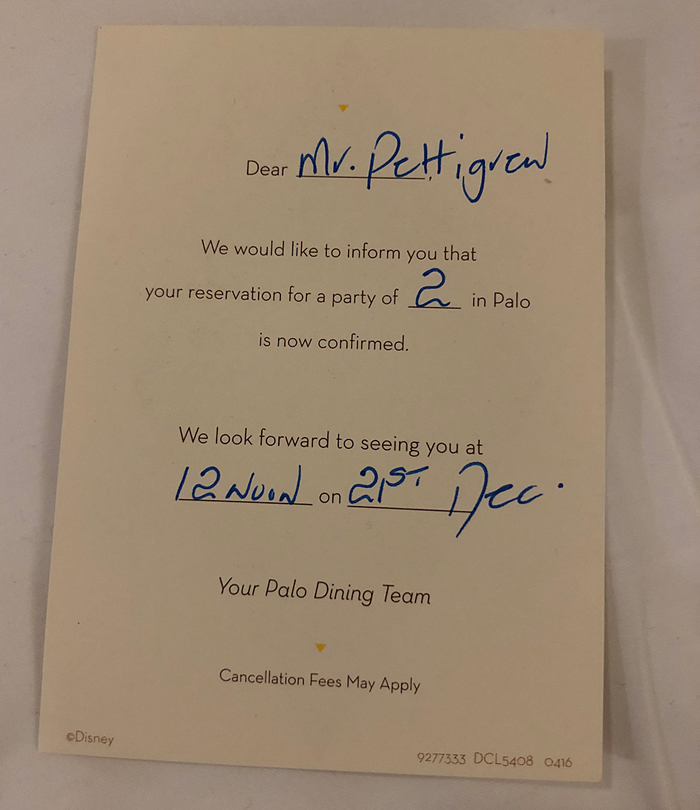 Dear Mr. Pettigrew
We would like to inform you that
your reservation for a party of 2 in Palo
is now confirmed.
We look forward to seeing you at
12 Noon on 21ST Dec.
Your Palo Dining Team
Cancellation Fees May Apply
©Disney
9277333 DCL5408 0416